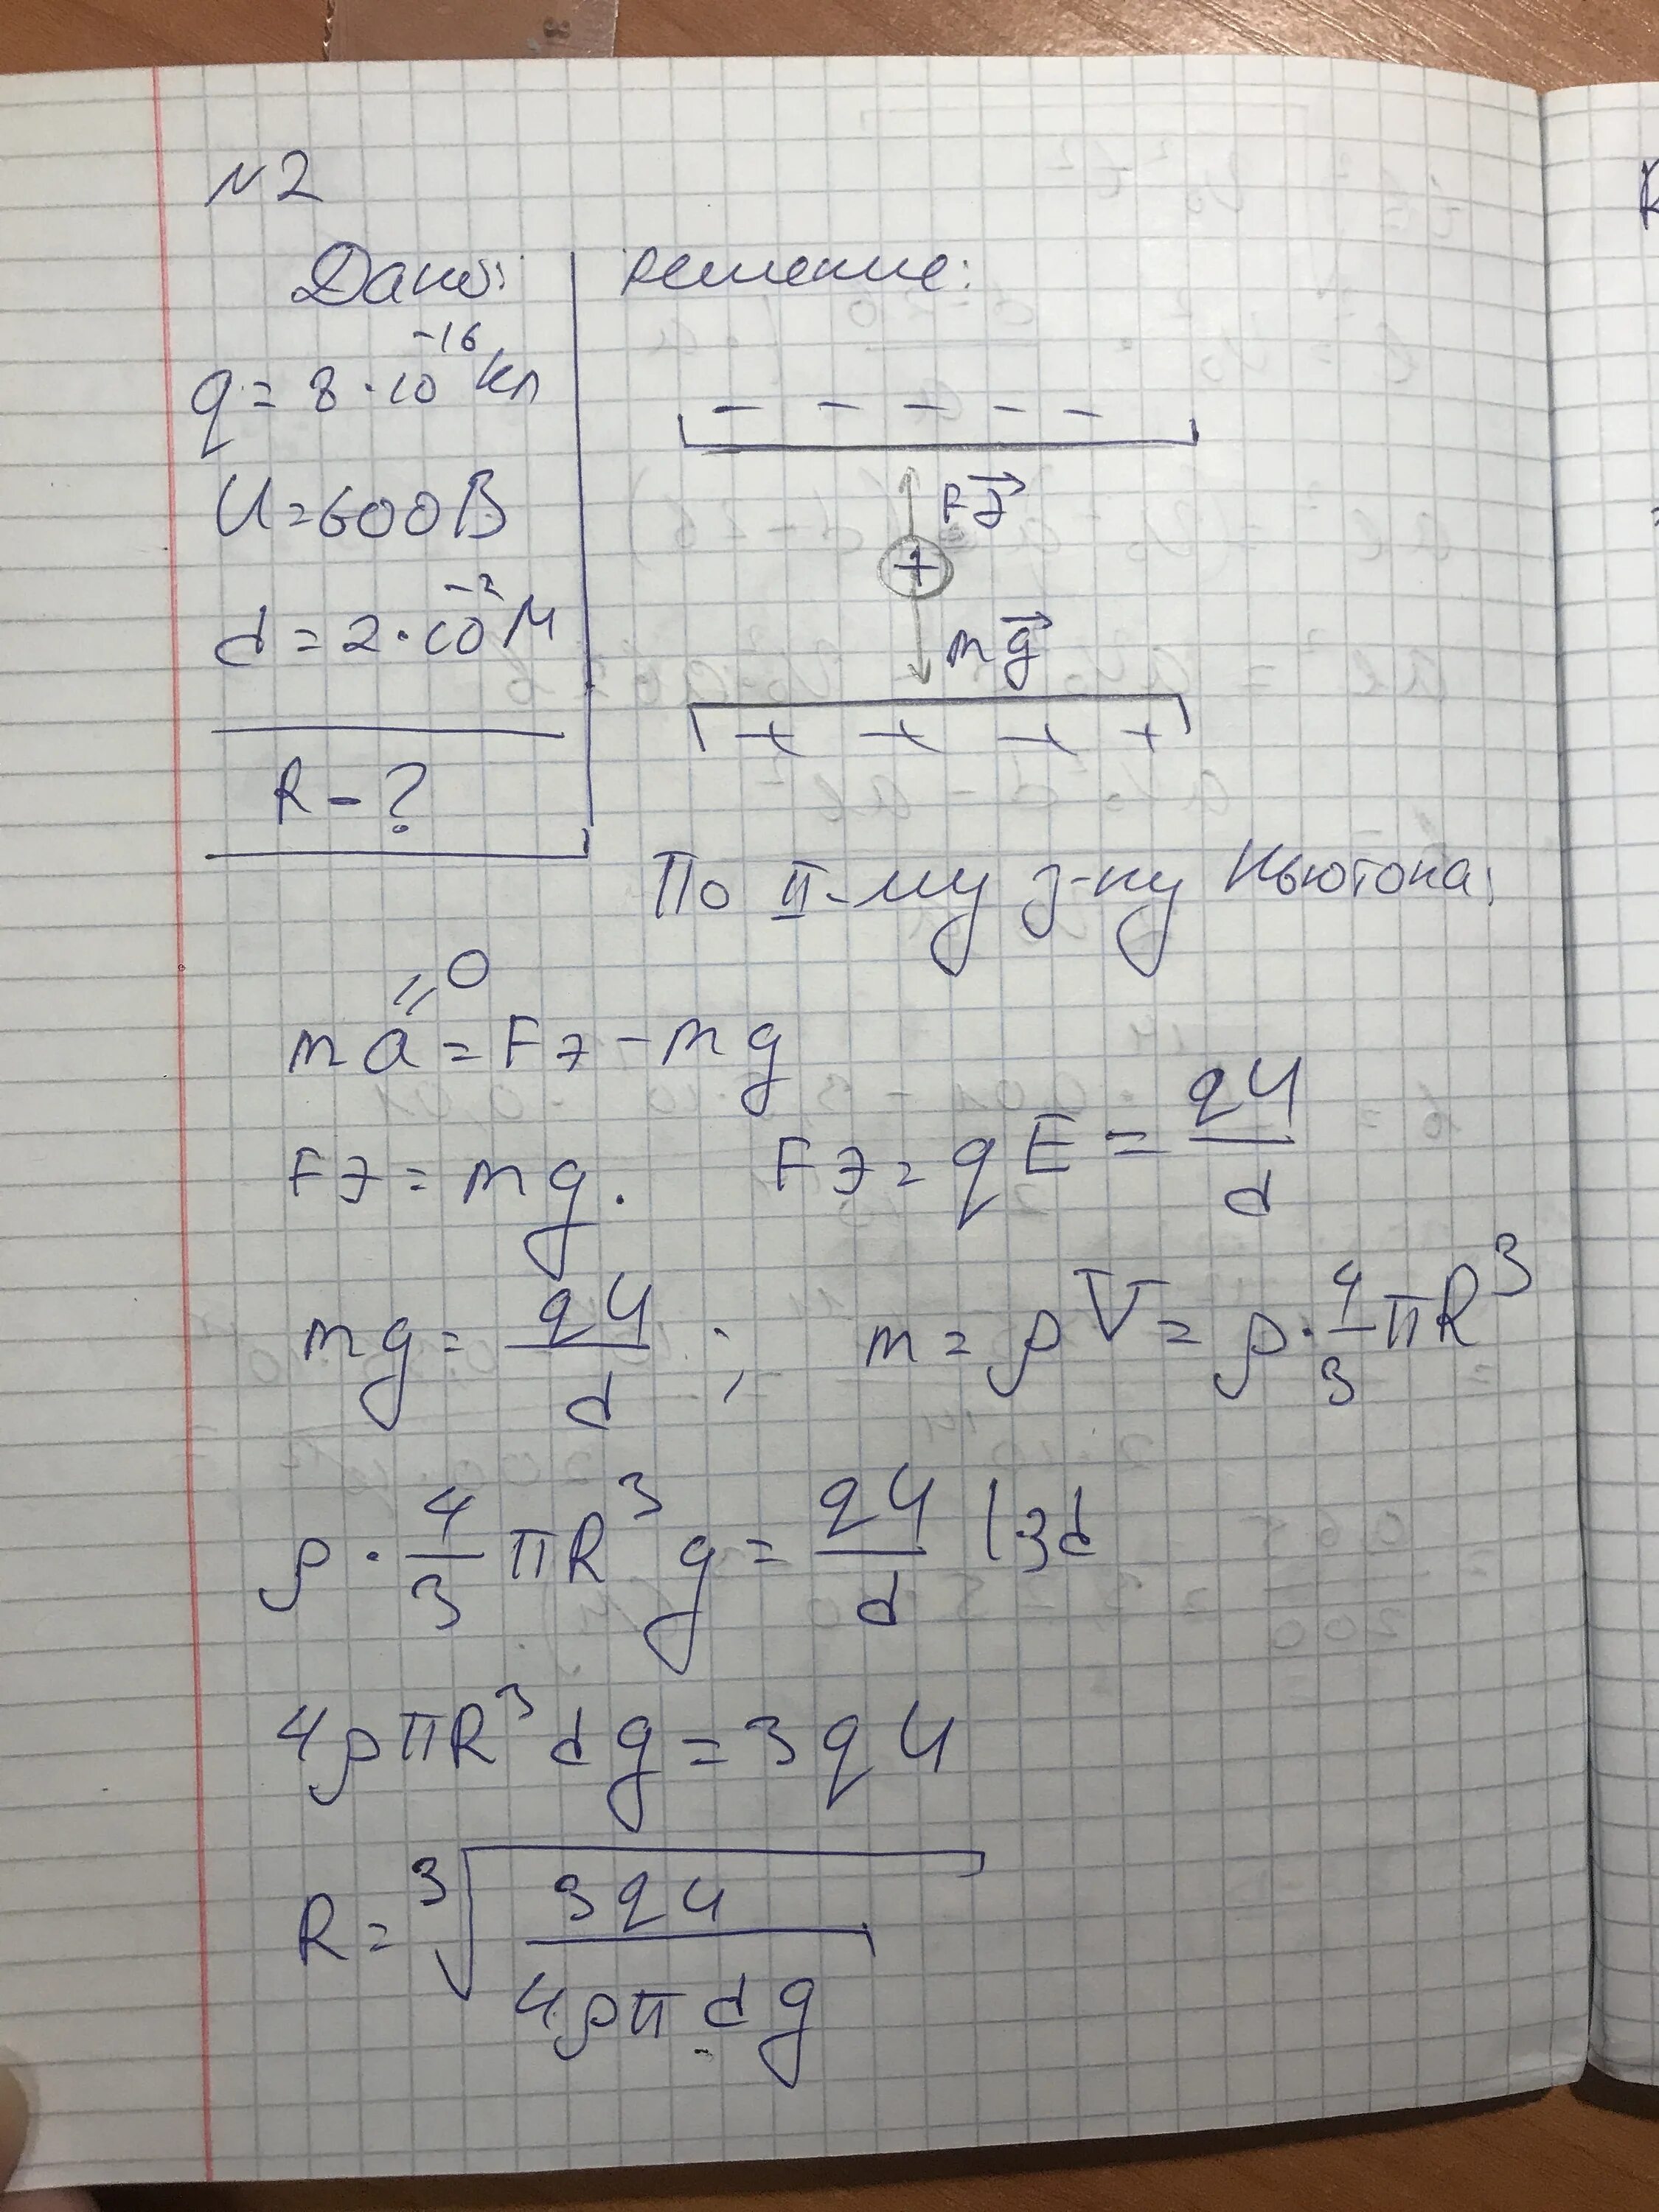 N2
Дано:
q = 8 · 10⁻¹⁶ Кл
U = 600 В
d = 2 · 10⁻² М
R – ?
Решение:
– – – – –
Fэ
+
mg
+ + + +
По II-му з-ну Ньютона:
= 0
ma = Fэ – mg
Fэ = mg. Fэ = qE = qU/d
mg = qU/d ; m = ρV = ρ · 4/3 πR³
ρ · 4/3 πR³ g = qU/d | 3d
4ρπR³dg = 3qU
R = ³√(3qU/4ρπdg)